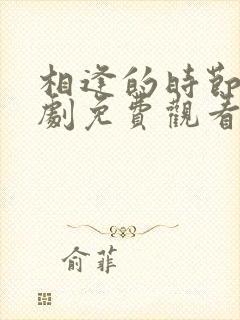 相逢的時節
劇免費觀看
俞菲